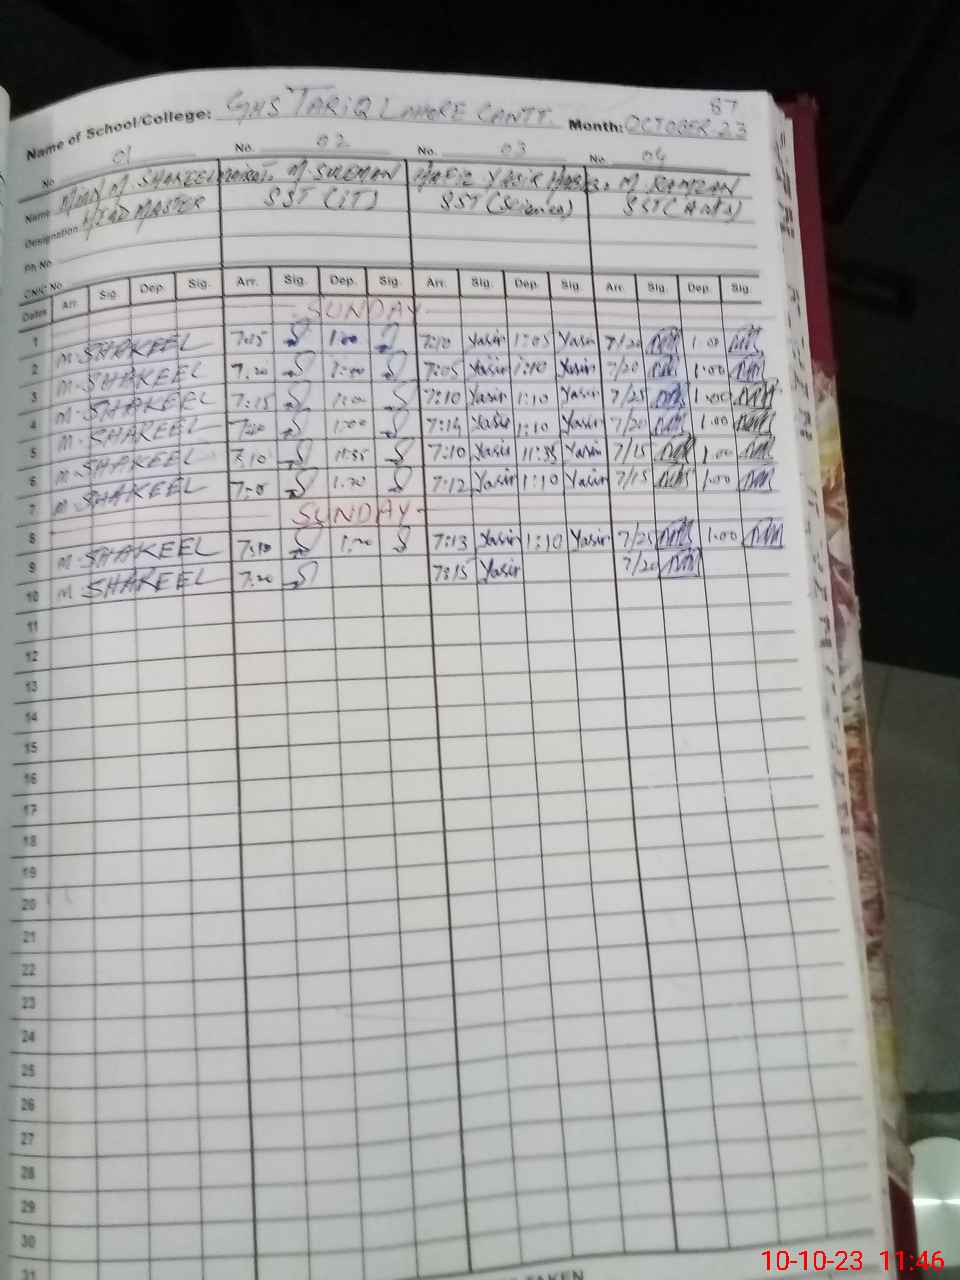 87
Name of School/College: GHS TARIQ LAHORE CANTT. Month: OCTOBER 23
No. 01 No. 02 No. 03 No. 04
Name MIAN M. SHAKEEL M. SULEMAN HAFIZ YASIR M. RAMZAN
Designation HEAD MASTER SST (IT) SST (Science) SST (Arts)
Ph No.
CNIC No
Dates Arr. Sig. Dep. Sig. Arr. Sig. Dep. Sig. Arr. Sig. Dep. Sig. Arr. Sig. Dep. Sig.
1 SUNDAY
2 M. SHAKEEL 7:15 1:00 7:10 Yasir 1:05 Yasir 7/20 1.00
3 M. SHAKEEL 7:20 7:05 Yasir 1:10 Yasir 7/20 1.00
4 M. SHAKEEL 7:15 1:00 7:10 Yasir 1:10 Yasir 7/25 1.00
5 M. SHAKEEL 1:00 7:14 Yasir 1:10 Yasir 7/20 1.00
6 M. SHAKEEL 7:10 11:35 7:10 Yasir 11:35 Yasir 7/15 1.00
7 M. SHAKEEL 7:12 Yasir 1:10 Yasir 7/15 1.00
8 SUNDAY
9 M. SHAKEEL 7:10 7:13 Yasir 1:10 Yasir 7/25 1.00
10 M. SHAKEEL 7:20 7:15 Yasir 7/20
11
12
13
14
15
16
17
18
19
20
21
22
23
24
25
26
27
28
29
30
31
TAKEN
10-10-23 11:46